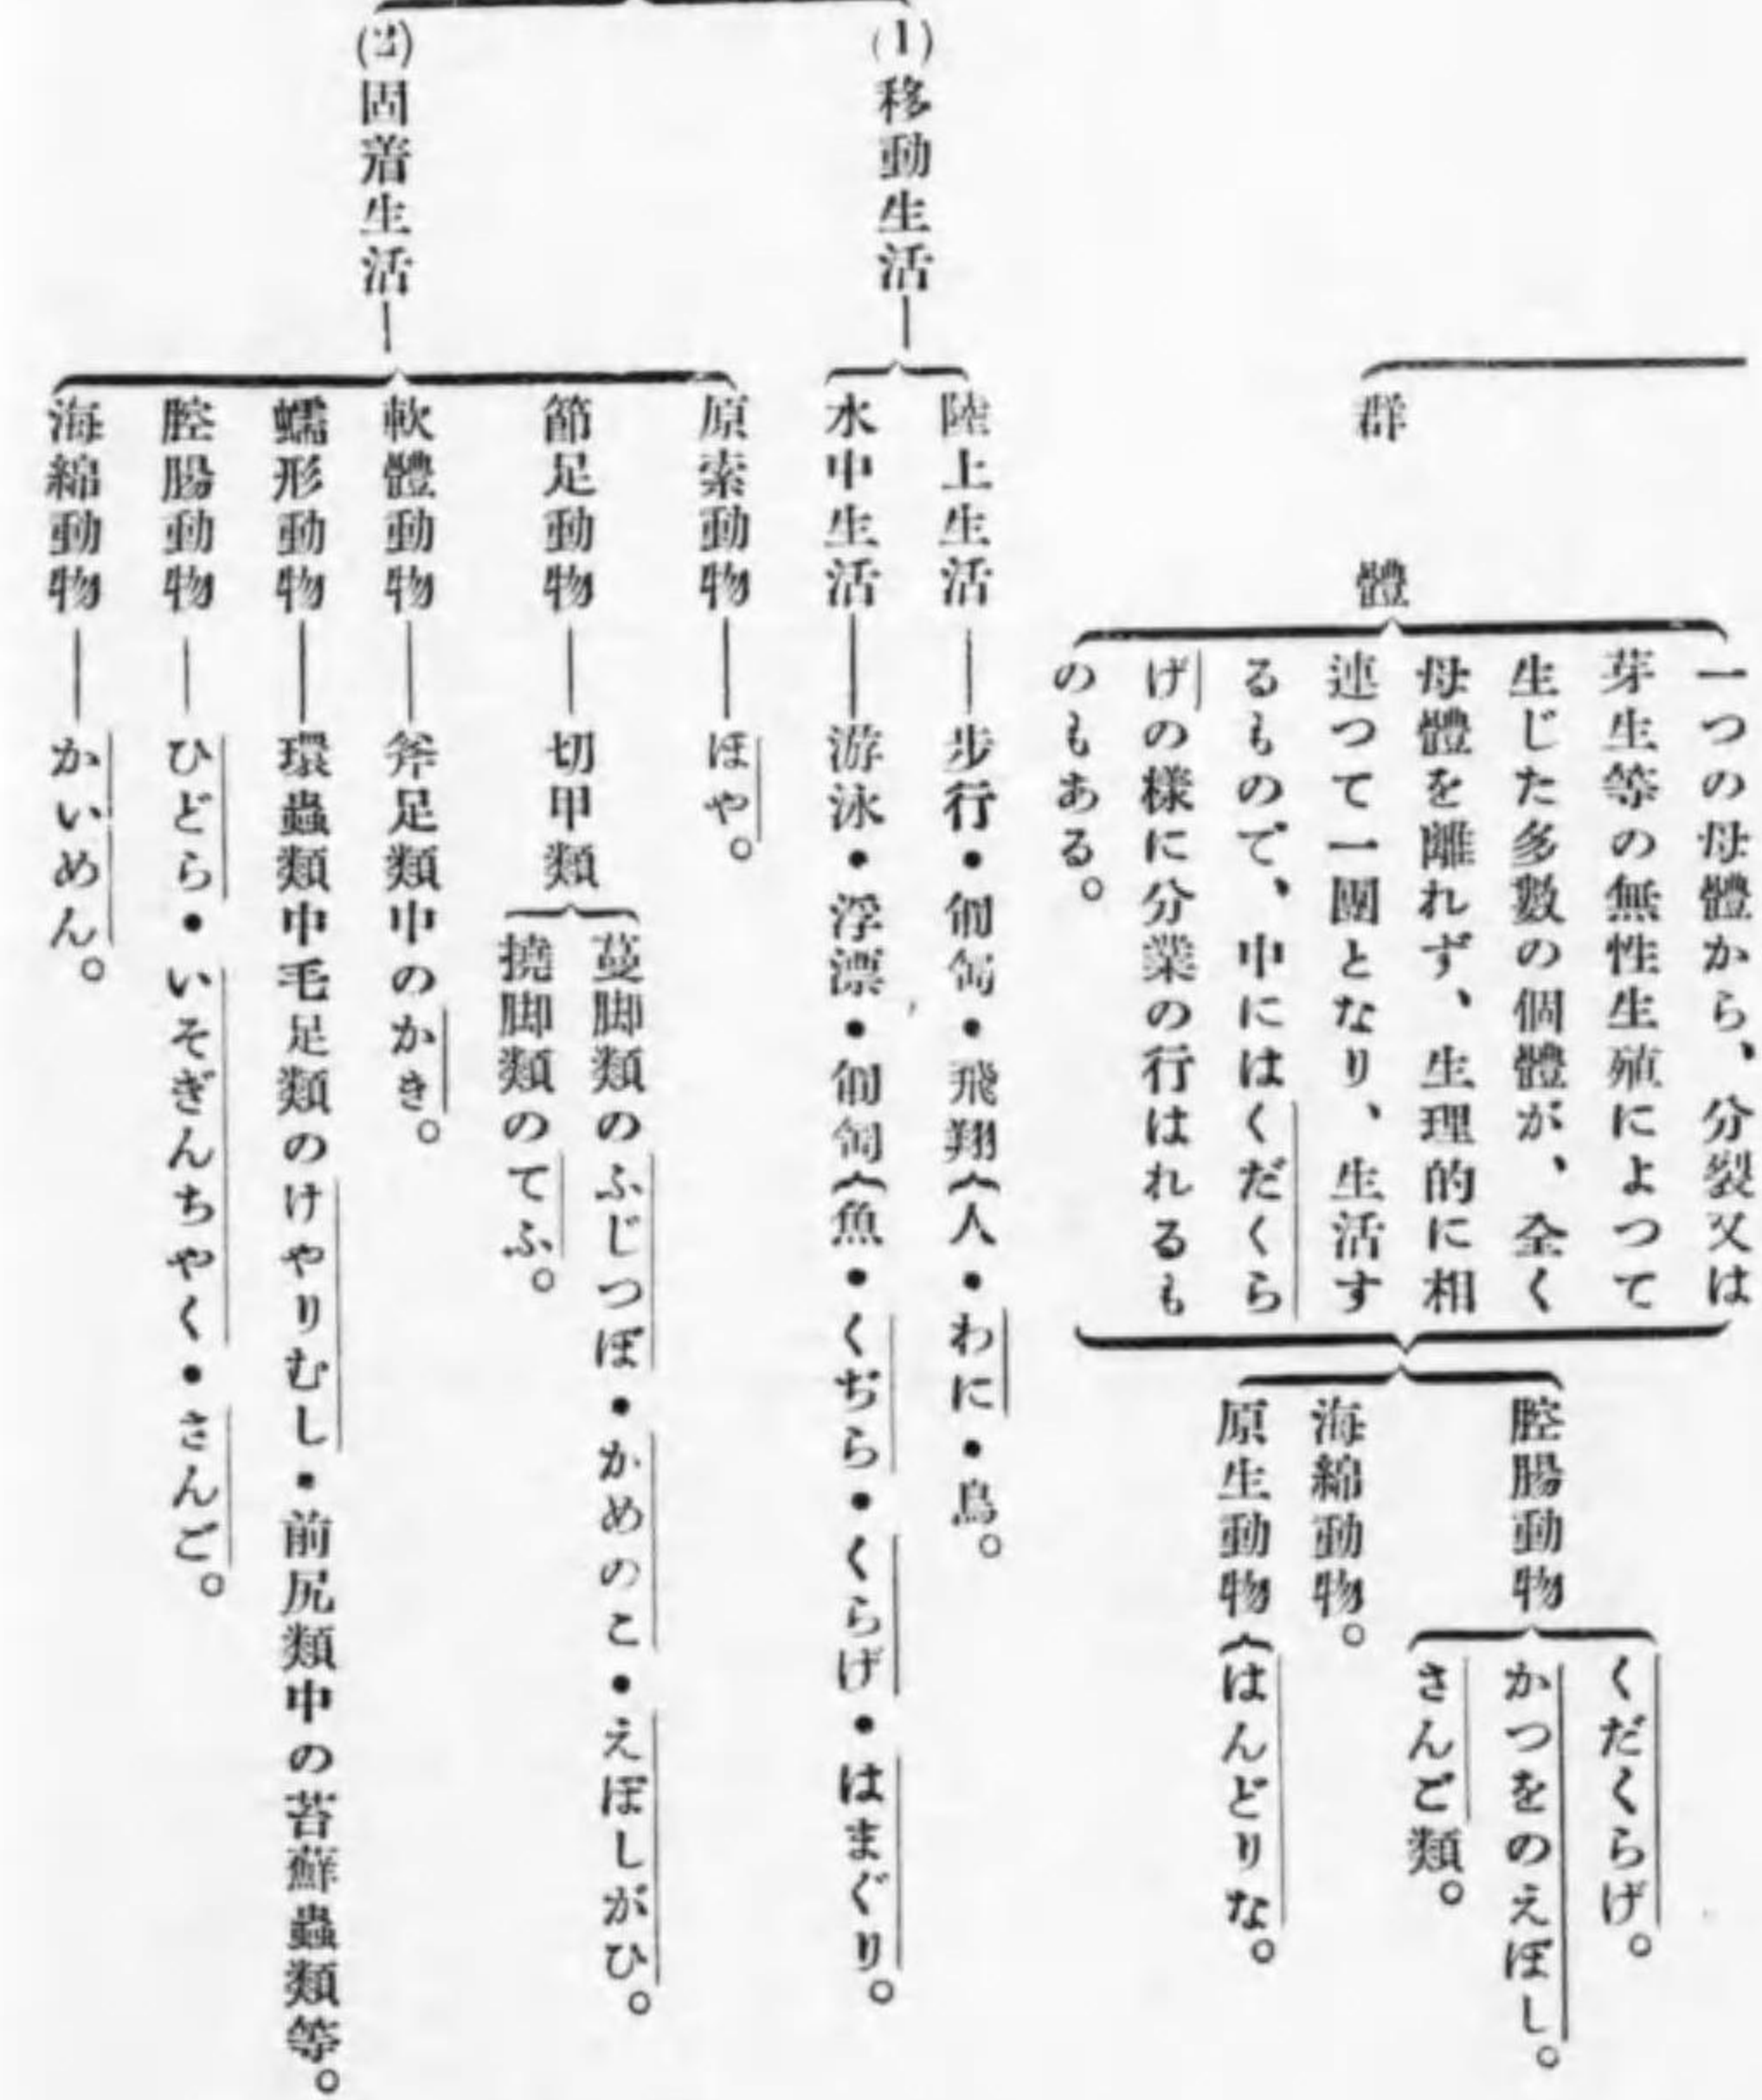 群體
一つの母體から、分裂又は
芽生等の無性生殖によつて
生じた多數の個體が、全く
母體を離れず、生理的に相
連つて一團となり、生活す
るもので、中にはくだくら
げの樣に分業の行はれるも
のもある。
腔腸動物
くだくらげ。
かつをのえぼし。
さんご類。
海綿動物。
原生動物{はんどりな。
(1)移動生活
陸上生活—步行・匍匐・飛翔{人・わに・鳥。
水中生活—游泳・浮漂・匍匐{魚・くぢら・くらげ・はまぐり。
(2)固着生活
原索動物—ほや。
節足動物—切甲類
蔓脚類のふじつぼ・かめのこ・えぼしがひ。
撓脚類のてふ。
軟體動物—斧足類中のかき。
蠕形動物—環蟲類中毛足類のけやりむし・前尻類中の苔蘚蟲類等。
腔腸動物—ひどら・いそぎんちやく・さんご。
海綿動物—かいめん。